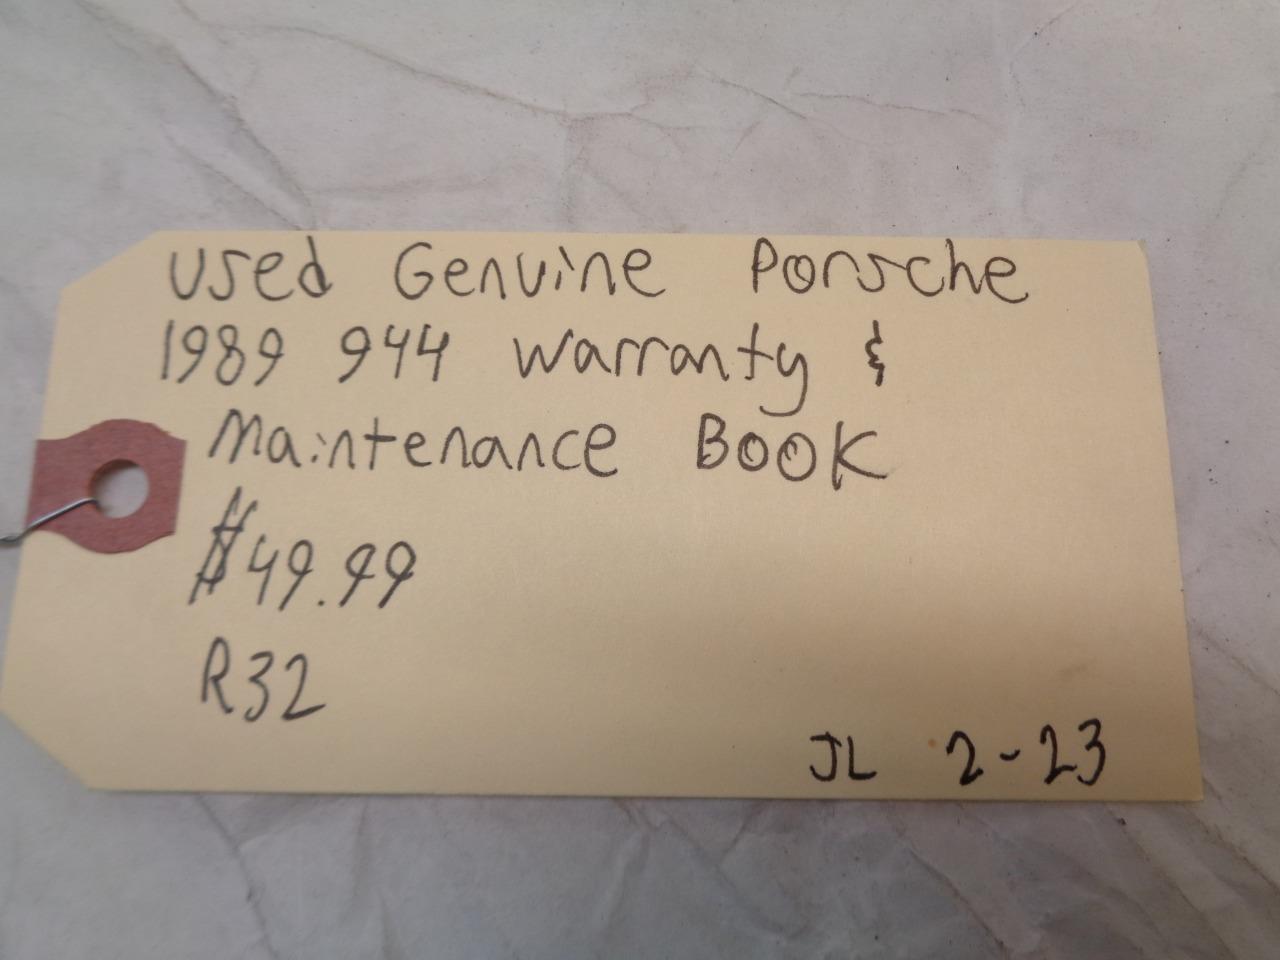 Used Genuine Porsche
1989 944 Warranty &
Maintenance Book
$49.99
R32
JL 2-23